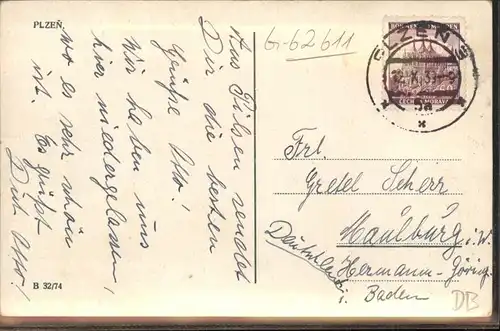 PLZEŇ.
Aus Pilsen sendet
Dir die besten
Grüße Otto!
Wir haben uns
hier niedergelassen,
wo es sehr schön
ist. Es grüßt
Dich Otto!
B 32/74
G-62611
BÖHMEN
PLZEŇ
Frl.
Gretel Scherr
Maulburg i. W.
Hermann-Göring
Deutschland
Baden
DB